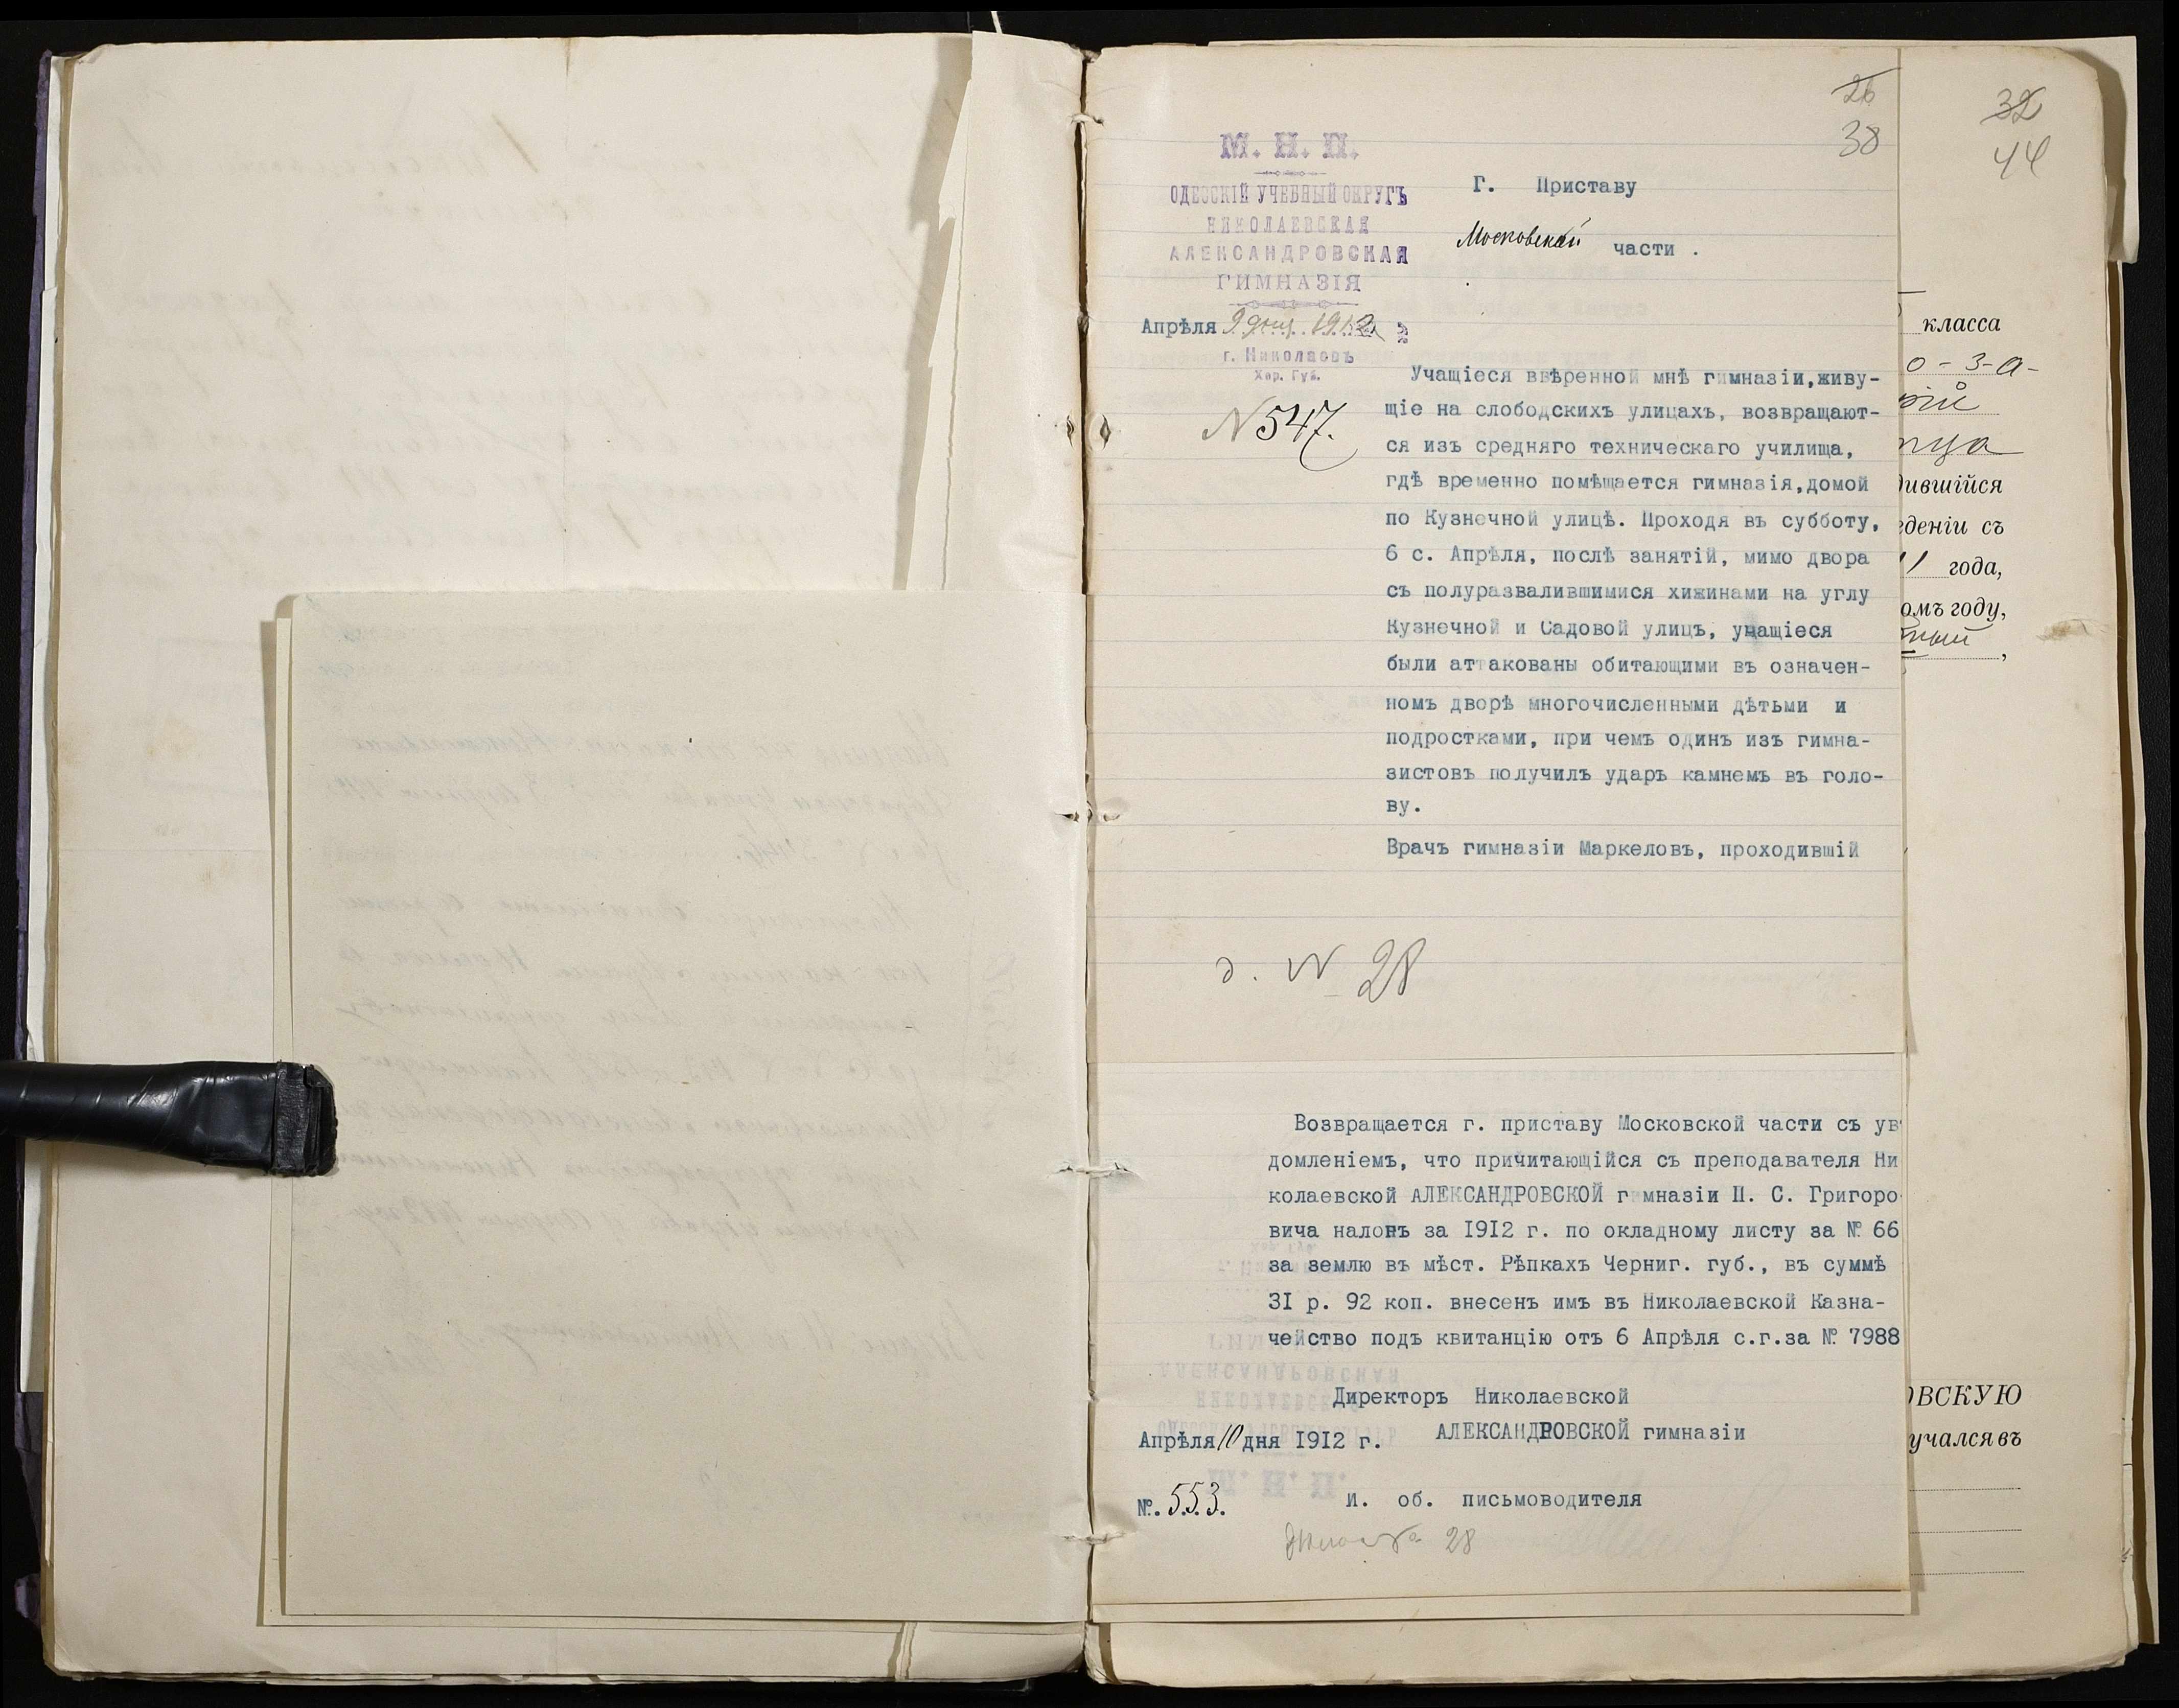 26
38
32
44
М. Н. П.
ОДЕССКІЙ УЧЕБНЫЙ ОКРУГЪ
НИКОЛАЕВСКАЯ
АЛЕКСАНДРОВСКАЯ
ГИМНАЗІЯ
Апрѣля 9 дня 1912
г. Николаевъ
Хер. Губ.
N 547.
Г. Приставу
Московской части .
Учащіеся ввѣренной мнѣ гимназіи,живу-
щіе на слободскихъ улицахъ, возвращают-
ся изъ средняго техническаго училища,
гдѣ временно помѣщается гимназія,домой
по Кузнечной улицѣ. Проходя въ субботу,
6 с. Апрѣля, послѣ занятій, мимо двора
съ полуразвалившимися хижинами на углу
Кузнечной и Садовой улицъ, учащіеся
были аттакованы обитающими въ означен-
номъ дворѣ многочисленными дѣтьми и
подростками, при чемъ одинъ изъ гимна-
зистовъ получилъ ударъ камнемъ въ голо-
ву.
Врачъ гимназіи Маркеловъ, проходившій
д. N 28
Возвращается г. приставу Московской части съ ув
домленіемъ, что причитающійся съ преподавателя Ни
колаевской АЛЕКСАНДРОВСКОЙ г мназіи П. С. Григоро
вича налогъ за 1912 г. по окладному листу за № 66
за землю въ мѣст. Рѣпкахъ Черниг. губ., въ суммѣ
31 р. 92 коп. внесенъ имъ въ Николаевской Казна-
чейство подъ квитанцію отъ 6 Апрѣля с.г.за № 7988
Директоръ Николаевской
АЛЕКСАНДРОВСКОЙ гимназіи
Апрѣля 10 дня 1912 г.
№. 553.
И. об. письмоводителя
28
класса
о-з-а-
рій
тца
дившійся
еденіи съ
11 года,
омъ году,
ный ,
ОВСКУЮ
учался въ